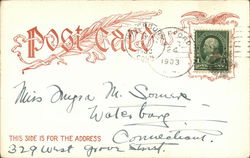 Post Card
1903
Miss Mysa M. Somers
Waterbury
THIS SIDE IS FOR THE ADDRESS
Connecticut.
329 West Grove Street.